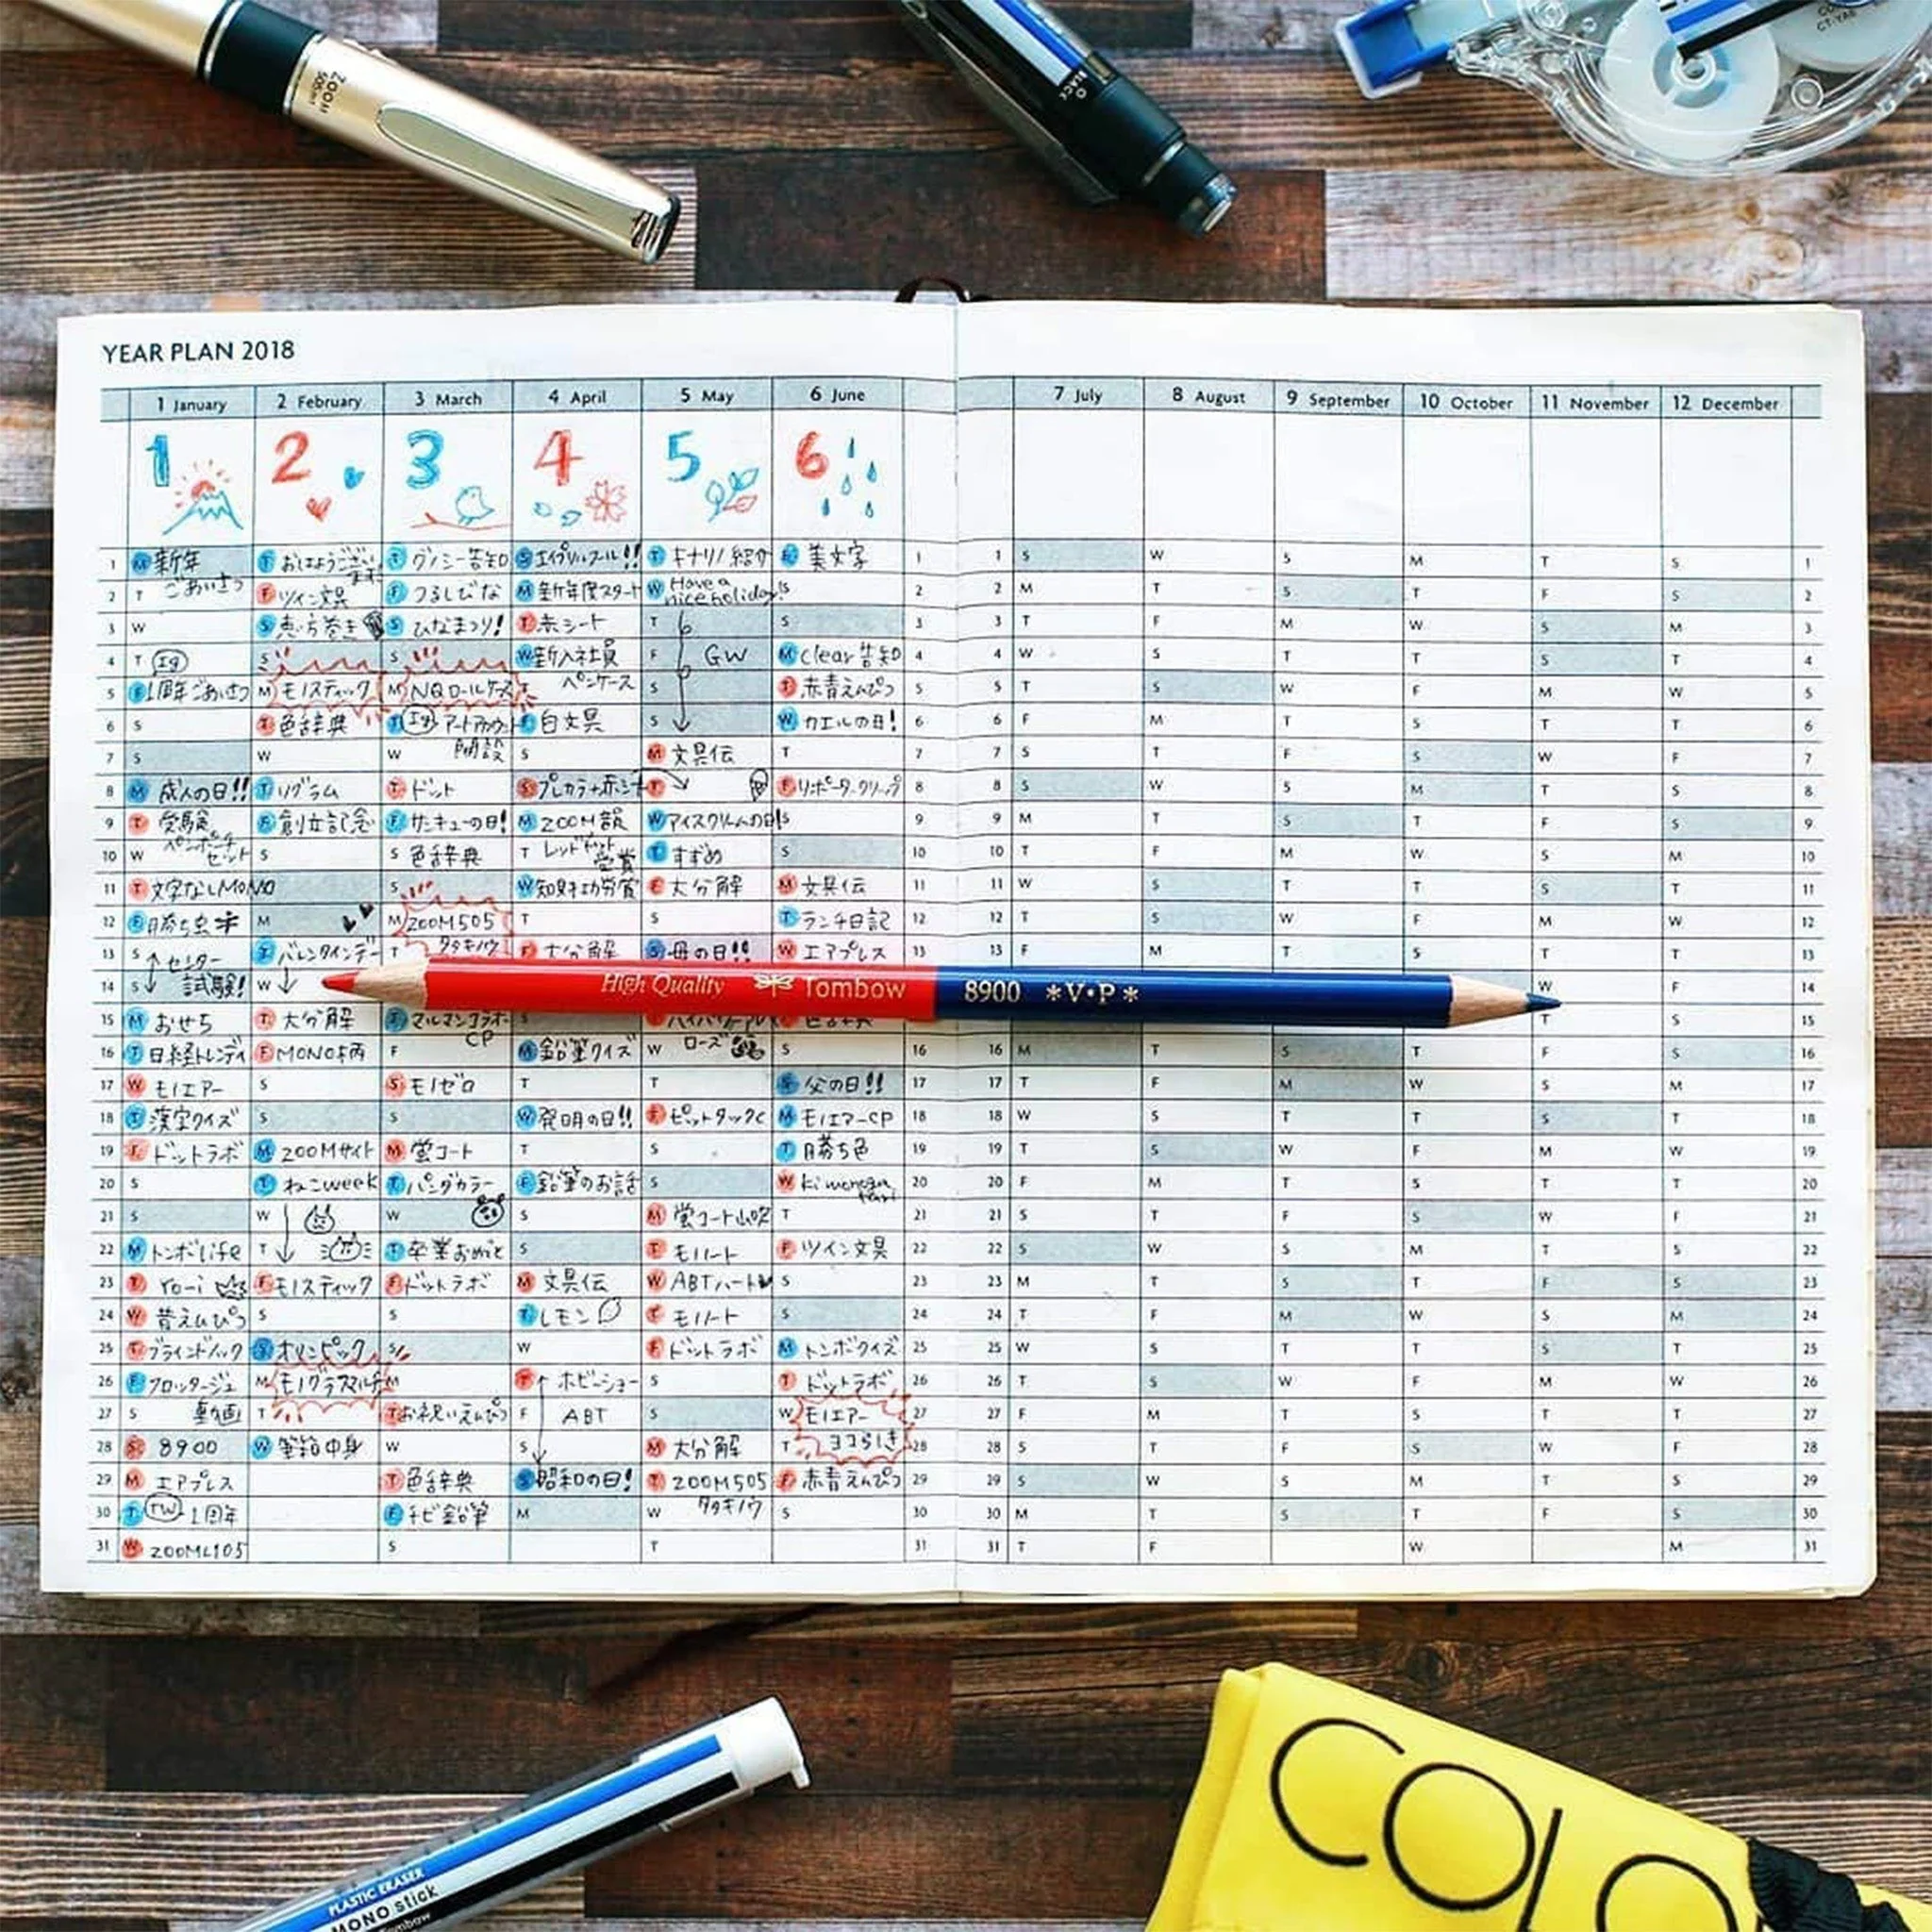 ZOOM
505mf
CT-YA6
YEAR PLAN 2018
1 January 2 February 3 March 4 April 5 May 6 June 7 July 8 August 9 September 10 October 11 November 12 December
1 2 3 4 5 6
1 M 新年 T おはようござい T グノシー告知 S エイプリルフール!! T キナリノ紹介 F 美文字 1 1 S W S M T S 1
2 T ごあいさつ F ツイン文具 F つるしびな M 新年度スタート W Have a nice holiday! S 2 2 M T S T F S 2
3 W S 恵方巻き S ひなまつり! T 赤シート T S 3 3 T F M W S M 3
4 T Ig S S W 新入社員 F GW M clear告知 4 4 W S T T S T 4
5 F 1周年ごあいさつ M モノスティック M NQロールケース T ペンケース S T 赤青えんぴつ 5 5 T S W F M W 5
6 S T 色辞典 T Ig アートアカウント F 白文具 S W カエルの日! 6 6 F M T S T T 6
7 S W W 開設 S M 文具伝 T 7 7 S T F S W F 7
8 M 成人の日!! T リグラム T ドット S プレカラ+赤シート T F リポータークリップ 8 8 S W S M T S 8
9 T 受験 F 創立記念 F サンキューの日! M ZOOM韻 W アイスクリームの日! S 9 9 M T S T F S 9
10 W ペンポーチセット S S 色辞典 T レッドドット受賞 T すずめ S 10 10 T F M W S M 10
11 T 文字なしMONO S W 知財功労賞 F 大分解 M 文具伝 11 11 W S T T S T 11
12 F 勝ち虫 M M ZOOM505 T S T ランチ日記 12 12 T S W F M W 12
13 S センター T バレンタインデー T タタキノウ F 大分解 S 母の日!! W エアプレス 13 F M T S T T 13
14 S 試験! W W F 14
High Quality Tombow 8900 *V•P*
15 M おせち T 大分解 マルマンコラボ T S 15
16 T 日経トレンディ F MONO柄 F CP M 鉛筆クイズ W ローズ S 16 16 M T S T F S 16
17 W モノエアー S S モノゼロ T T S 父の日!! 17 17 T F M W S M 17
18 T 漢字クイズ S S W 発明の日!! F ピットタックC M モノエアーCP 18 18 W S T T S T 18
19 F ドットラボ M ZOOMサイト M 蛍コート T S T 勝ち色 19 19 T S W F M W 19
20 S T ねこweek T パンダカラー F 鉛筆のお話 S W kimonogatari 20 20 F M T S T T 20
21 S W W S M 蛍コート山吹 T 21 21 S T F S W F 21
22 M トンボlife T T 卒業おめでと S T モノノート F ツイン文具 22 22 S W S M T S 22
23 T ro-i F モノスティック F ドットラボ M 文具伝 W ABTハート S 23 23 M T S T F S 23
24 W 昔えんぴつ S S T レモン T モノノート S 24 24 T F M W S M 24
25 T ブラインドノック S オリンピック S W F ドットラボ M トンボクイズ 25 25 W S T T S T 25
26 F フロッタージュ M モノグラフマルチ M T ホビーショー S T ドットラボ 26 26 T S W F M W 26
27 S 動画 T T お祝いえんぴつ F ABT S W モノエアー 27 27 F M T S T T 27
28 S 8900 W 筆箱中身 W S M 大分解 T ヨコらしき 28 28 S T F S W F 28
29 M エアプレス T 色辞典 S 昭和の日! T ZOOM505 F 赤青えんぴつ 29 29 S W S M T S 29
30 T TW 1周年 F チビ鉛筆 M W タタキノウ S 30 30 M T S T F S 30
31 W ZOOML105 S T 31 31 T F W M 31
PLASTIC ERASER
MONO stick
Tombow
COLO